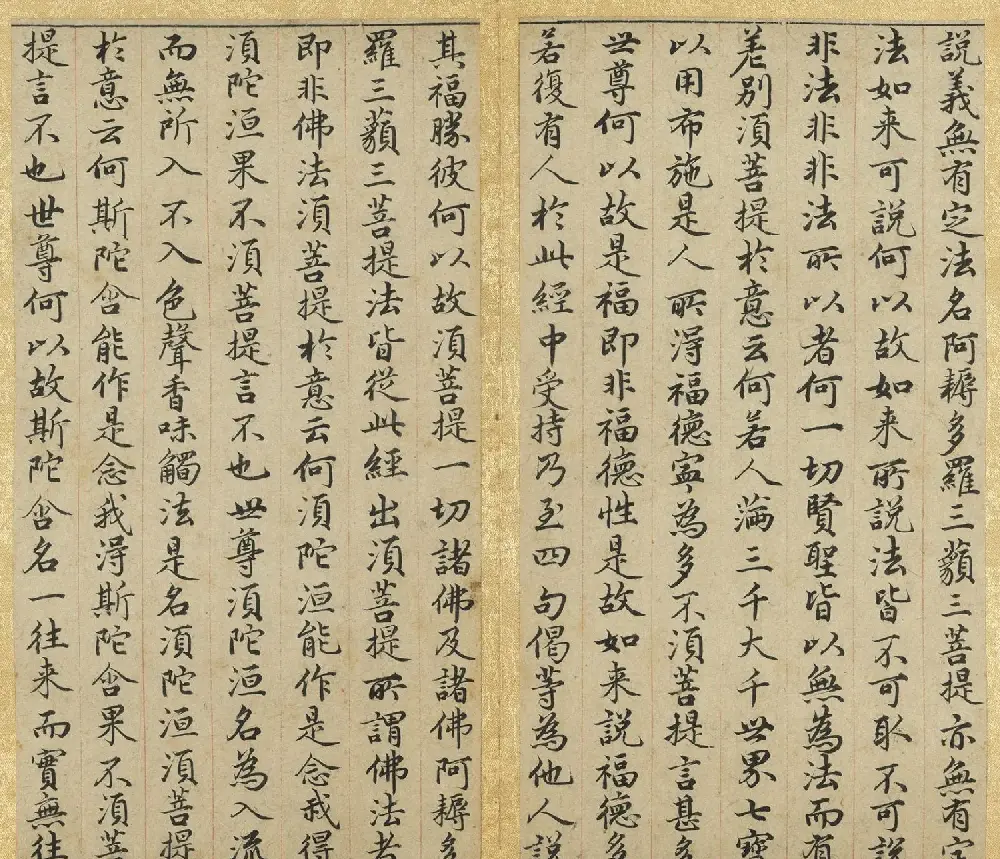 說義無有定法名阿耨多羅三藐三菩提亦無有定
法如来可說何以故如来所說法皆不可取不可說
非法非非法所以者何一切賢聖皆以無為法而有
差別須菩提於意云何若人滿三千大千世界七寶
以用布施是人所得福德寧為多不須菩提言甚多
世尊何以故是福即非福德性是故如来說福德多
若復有人於此經中受持乃至四句偈等為他人說
其福勝彼何以故須菩提一切諸佛及諸佛阿耨多
羅三藐三菩提法皆從此經出須菩提所謂佛法者
即非佛法須菩提於意云何須陀洹能作是念我得
須陀洹果不須菩提言不也世尊須陀洹名為入流
而無所入不入色聲香味觸法是名須陀洹須菩提
於意云何斯陀含能作是念我得斯陀含果不須菩
提言不也世尊何以故斯陀含名一往来而實無往